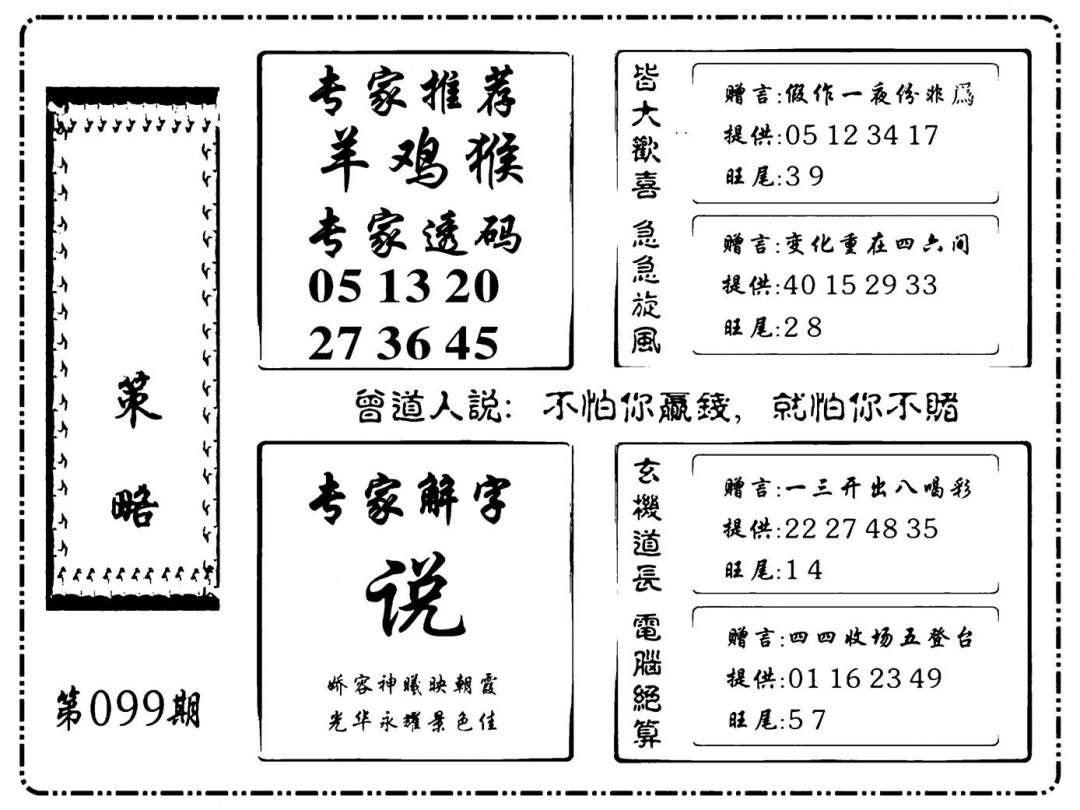 策
略
第099期
专家推荐
羊鸡猴
专家透码
05 13 20
27 36 45
皆大歡喜
赠言:假作一夜份非爲
提供:05 12 34 17
旺尾:3 9
急急旋风
赠言:变化重在四六间
提供:40 15 29 33
旺尾:2 8
曾道人説: 不怕你贏錢, 就怕你不賭
专家解字
说
娇容神曦映朝霞
光华永耀景色佳
玄機道長
赠言:一三开出八喝彩
提供:22 27 48 35
旺尾:1 4
電腦絕算
赠言:四四收场五登台
提供:01 16 23 49
旺尾:5 7